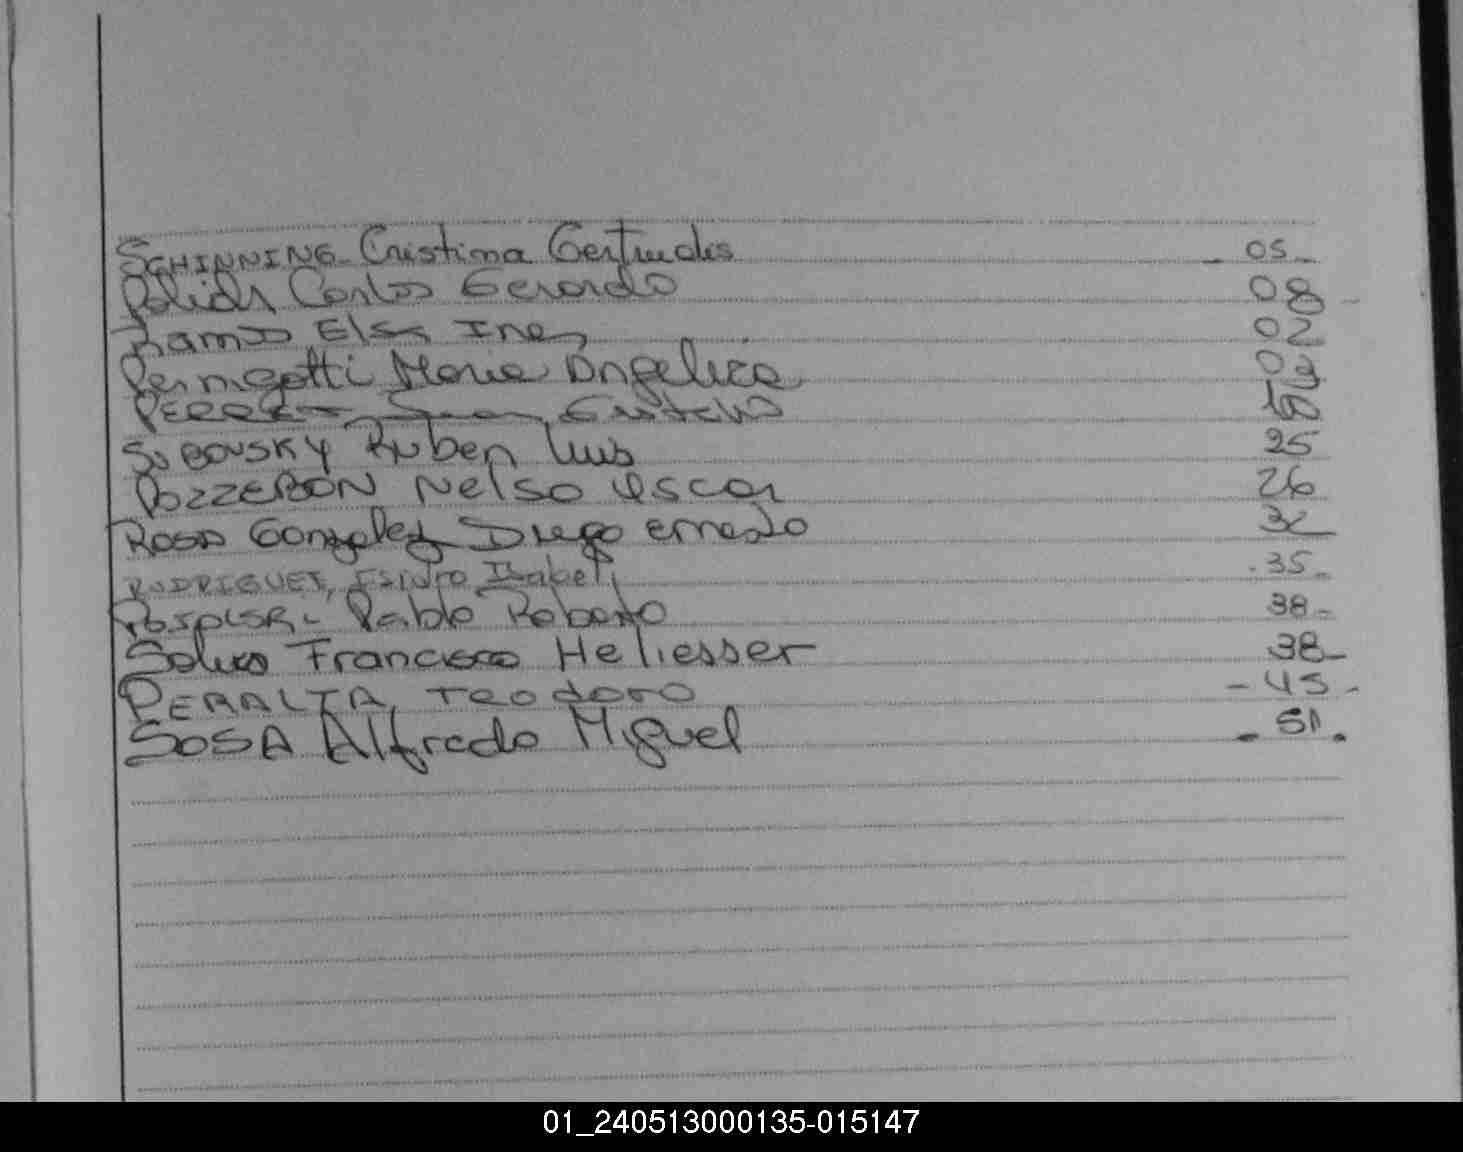 SCHINNING - Cristina Gertrudis - 05 -
Carlos Gerardo 08 -
Ramos Elsa Ines 02
Pernigotti Maria Angelica 09
Gustavo
SUBOVSKY Ruben Luis 25
POZZEBON Nelso Oscar 26
ROSA Gonzalez Diego ernesto 32
RODRIGUEZ, Isidro Isabel . 35 -
Pablo Roberto 38 -
Francisco Heliesser 38 -
PERALTA, Teodoro - 45 -
SOSA Alfredo Miguel - 51 .
01_240513000135-015147